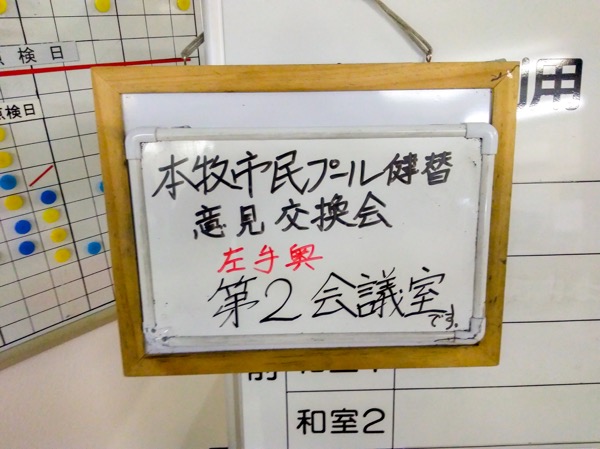 点検日
点検日
用
本牧市民プール健替
意見交換会
左手奥
第2会議室
です。
前
和室2